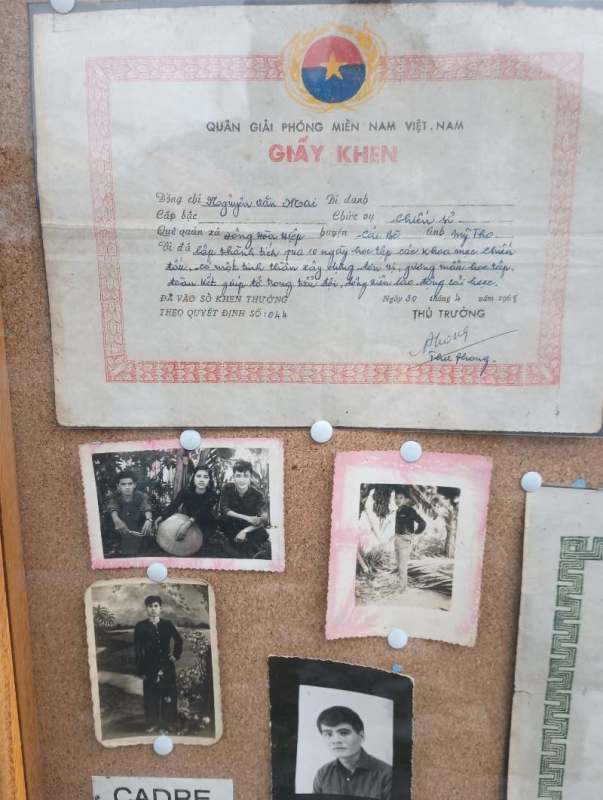 QUÂN GIẢI PHÓNG MIỀN NAM VIỆT.NAM
GIẤY KHEN
Đồng chí Nguyễn Văn Mai Bí danh
Cấp bậc Chức vụ chiến sĩ
Quê quán xã Đông Hòa Hiệp huyện Cái Bè tỉnh Mỹ Tho.
Vì đã lập thành tích qua 10 ngày học tập các khoa mục chiến
đấu, có một tinh thần xây dựng đơn vị, gương mẫu học tập,
đoàn kết giúp đỡ trong tiểu đội, động viên lao động
ĐÃ VÀO SỔ KHEN THƯỞNG Ngày 30 tháng 4 năm 196
THEO QUYẾT ĐỊNH SỐ: 044 THỦ TRƯỞNG
Phong
CADRE